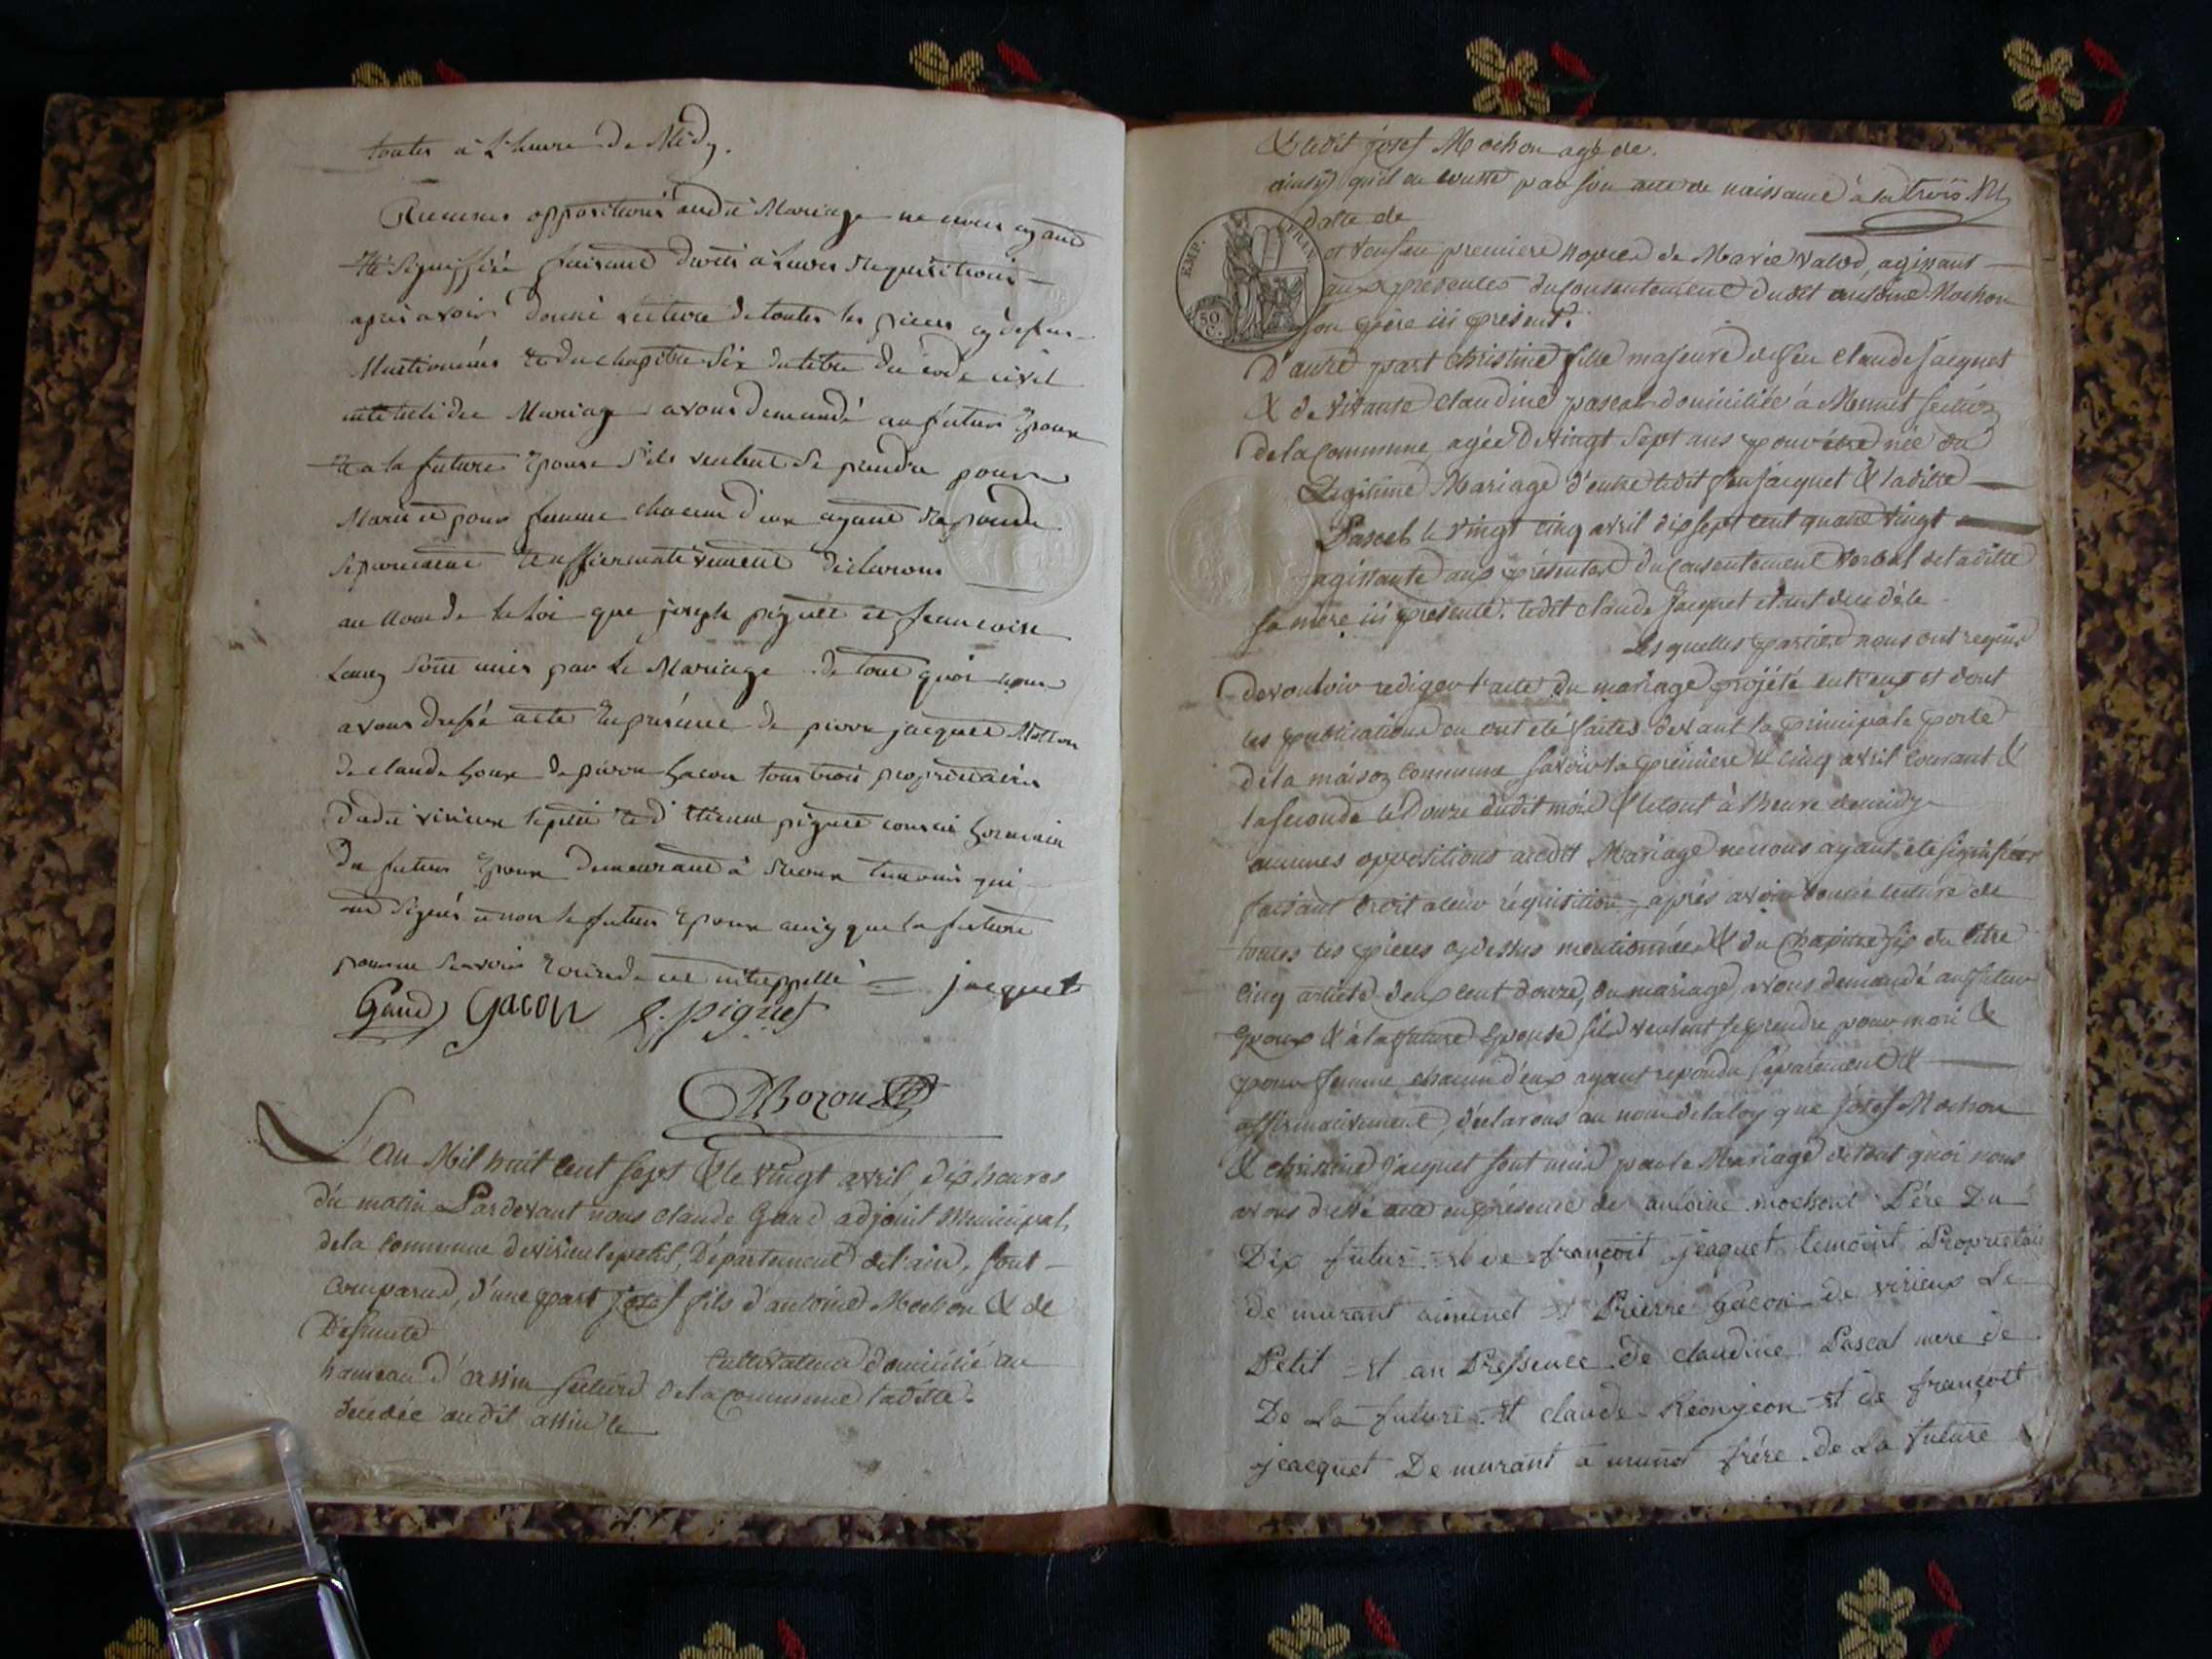 toutes à L'heure de Midy.
Aucunes oppositions audit Mariage ne nous ayant
été Signiffiée faisant droits à Leurs Requisitions
apres avoir donné Lecture de toutes les pieces cy dessus
Mentionnées et du chapitre Six du titre du code civil
intitulé du Mariage avons demandé au futur Epoux
et a la future Epouse S'ils veulent Se prendre pour
Mari et pour femme chacun d'eux ayant Repondu
Séparement et affirmativement déclarons
au Nom de la Loi que joseph piguet et francoise
Sont unis par Le Mariage de tout quoi nous
avons dressé acte En présence de pierre jacquet
de claude de pierre Gacon tous trois proprietaires
dudit virieux le petit et d'Etienne piguet cousin Germain
du futur Epoux demeurant à temoins qui
ont Signés et non le futur Epoux ainsy que la future
pour ne Savoir Ecrire de ce interppellé = jacquet
Gaud Gacon E. piguet
Bozon
L'an Mil huit Cent Sept & le vingt avril, dix heures
du matin Pardevant nous Claude Gaud adjoint Municipal
de la Commune de virieu le petit, Département de l'ain, sont
Comparus, d'une part Josef fils d'antoine Mochon & de
Défunte
cultivateur domicilié au
hameau d'assin section de la Commune ladite
décédée audit assin le
& ledit josef Mochon agé de
ainsy qu'il en conste par son acte de naissance à la trois
datte de
EMP. FRAN.
50 C.
et veuf en premiere nopces de Marie valod, agissant
aux présentes du Consentement dudit antoine Mochon
son père ici présent.
D'autre part Christine fille majeure de feu Claude Jacquet
& de vivante Claudine pascal domiciliée à Munet section
de la Commune, agée de vingt Sept ans pour être née du
Legitime Mariage d'entre ledit feu jacquet & ladite
Pascal le vingt cinq avril dix sept cent quatre vingt
agissante aux présentes du Consentement verbal de ladite
sa mère ici présente. ledit Claude Jacquet étant décédé le
Lesquelles parties nous ont requis
de vouloir rediger l'acte du mariage projété entr'eux et dont
les publications en ont été faites devant la principale porte
de la maison Commune savoir la première le cinq avril Courant &
la seconde le Douze dudit mois & le tout à l'heure de midy
aucunes oppositions audit Mariage ne nous ayant été signifiées
faisant droit a leur réquisition, après avoir donné lecture de
toutes les pieces cy dessus mentionnées & du Chapitre six du titre
Cinq article deux cent douze, du mariage, avons demandé au futur
époux & à la future épouse s'ils veulent se prendre pour mari &
pour femme chacun d'eux ayant repondu séparement &
affirmativement, déclarons au nom de la loy que Josef Mochon
& Christine Jacquet sont unis par le Mariage de tout quoi nous
avons dressé acte en présence de antoine mochont Pére Du
Dix futur et de françoit jeaquet temoint Proprietaire
de murant amunet et Prierre Gacon de virieux Le
Petit et an Pressence de claudine Pascal mere de
De La future et claude Reonjeon et de françoit
jeacquet De murant a munet frére de La future